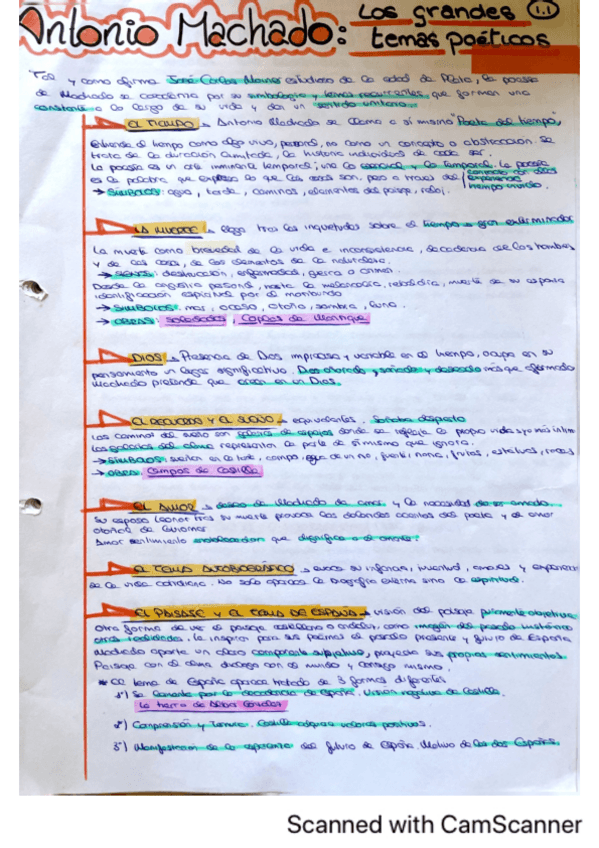 Antonio Machado: Los grandes 1.1
temas poéticos
Tal y como afirma José Carlos Mainer estudioso de la edad de Plata, la poesía
de Machado se caracteriza por su simbología y temas recurrentes, que forman una
constante a lo largo de su vida y dan un sentido unitario.
EL TIEMPO → Antonio Machado se llama a sí mismo "Poeta del tiempo",
entiende el tiempo como algo vivo, personal, no como un concepto o abstracción. Se
trata de la duración limitada, la historia individual de cada ser.
La poesía es un arte temporal; une lo esencial y lo temporal. La poesía
es la palabra que expresa lo que las cosas son, pero a través del contacto con ellas
experiencia
tiempo vivido.
→ SÍMBOLOS: agua, tarde, caminos, elementos del paisaje, reloj.
LA MUERTE → llega tras las inquietudes sobre el tiempo
La muerte como brevedad de la vida e inconsistencia, decadencia de los hombres
y de las cosas, de los elementos de la naturaleza.
→ destrucción, enfermedades, guerra o crimen.
Desde la angustia personal, hasta la melancolía, rebeldía,
identificación espiritual por el moribundo
→ SÍMBOLOS: mar, ocaso, otoño, sombra, luna.
→ OBRAS: Soledades, Coplas de Manrique
DIOS → Presencia de Dios imprecisa y variable en el tiempo, ocupa en su
pensamiento un lugar significativo. Dios añorado, soñado y deseado más que afirmado
Machado pretende creer en un Dios.
EL RECUERDO Y EL SUEÑO → equivalentes. Soñaba despierto
Los caminos del sueño son galerías de espejos donde se refleja la propia vida y lo más íntimo
Las galerías del alma representan la parte de sí mismo que ignora.
→ SÍMBOLOS: campo, fuente, noria, frutas, estatuas,
→ OBRA: Campos de Castilla
EL AMOR → deseo de Machado de amar y la necesidad de ser amado.
Su esposa Leonor tras su muerte provoca los del poeta y el amor
otoñal de Guiomar
Amor sentimiento que dignifica a el amante.
EL TEMA AUTOBIOGRÁFICO → evoca su infancia, juventud, amores y
de la vida cotidiana. No solo aparece la biografía externa sino la espiritual.
EL PAISAJE Y EL TEMA DE ESPAÑA → visión del paisaje puramente objetiva
Otra forma de ver el paisaje castellano o andaluz, como imagen del pasado histórico
otras realidades, le inspira para sus poemas el pasado presente y futuro de España
Machado aporta un claro componente subjetivo, proyecta sus propios sentimientos.
Paisaje con el alma dialoga con el mundo y consigo mismo.
* El tema de España aparece tratado de 3 formas diferentes
1º) Se lamenta por la decadencia de España. Visión negativa de Castilla.
La tierra de Alvar González
2º) Comprensión y Ternura. Castilla adquiere valores positivos.
3º) Manifestación de la esperanza del futuro de España. Motivo de las dos Españas.
Scanned with CamScanner